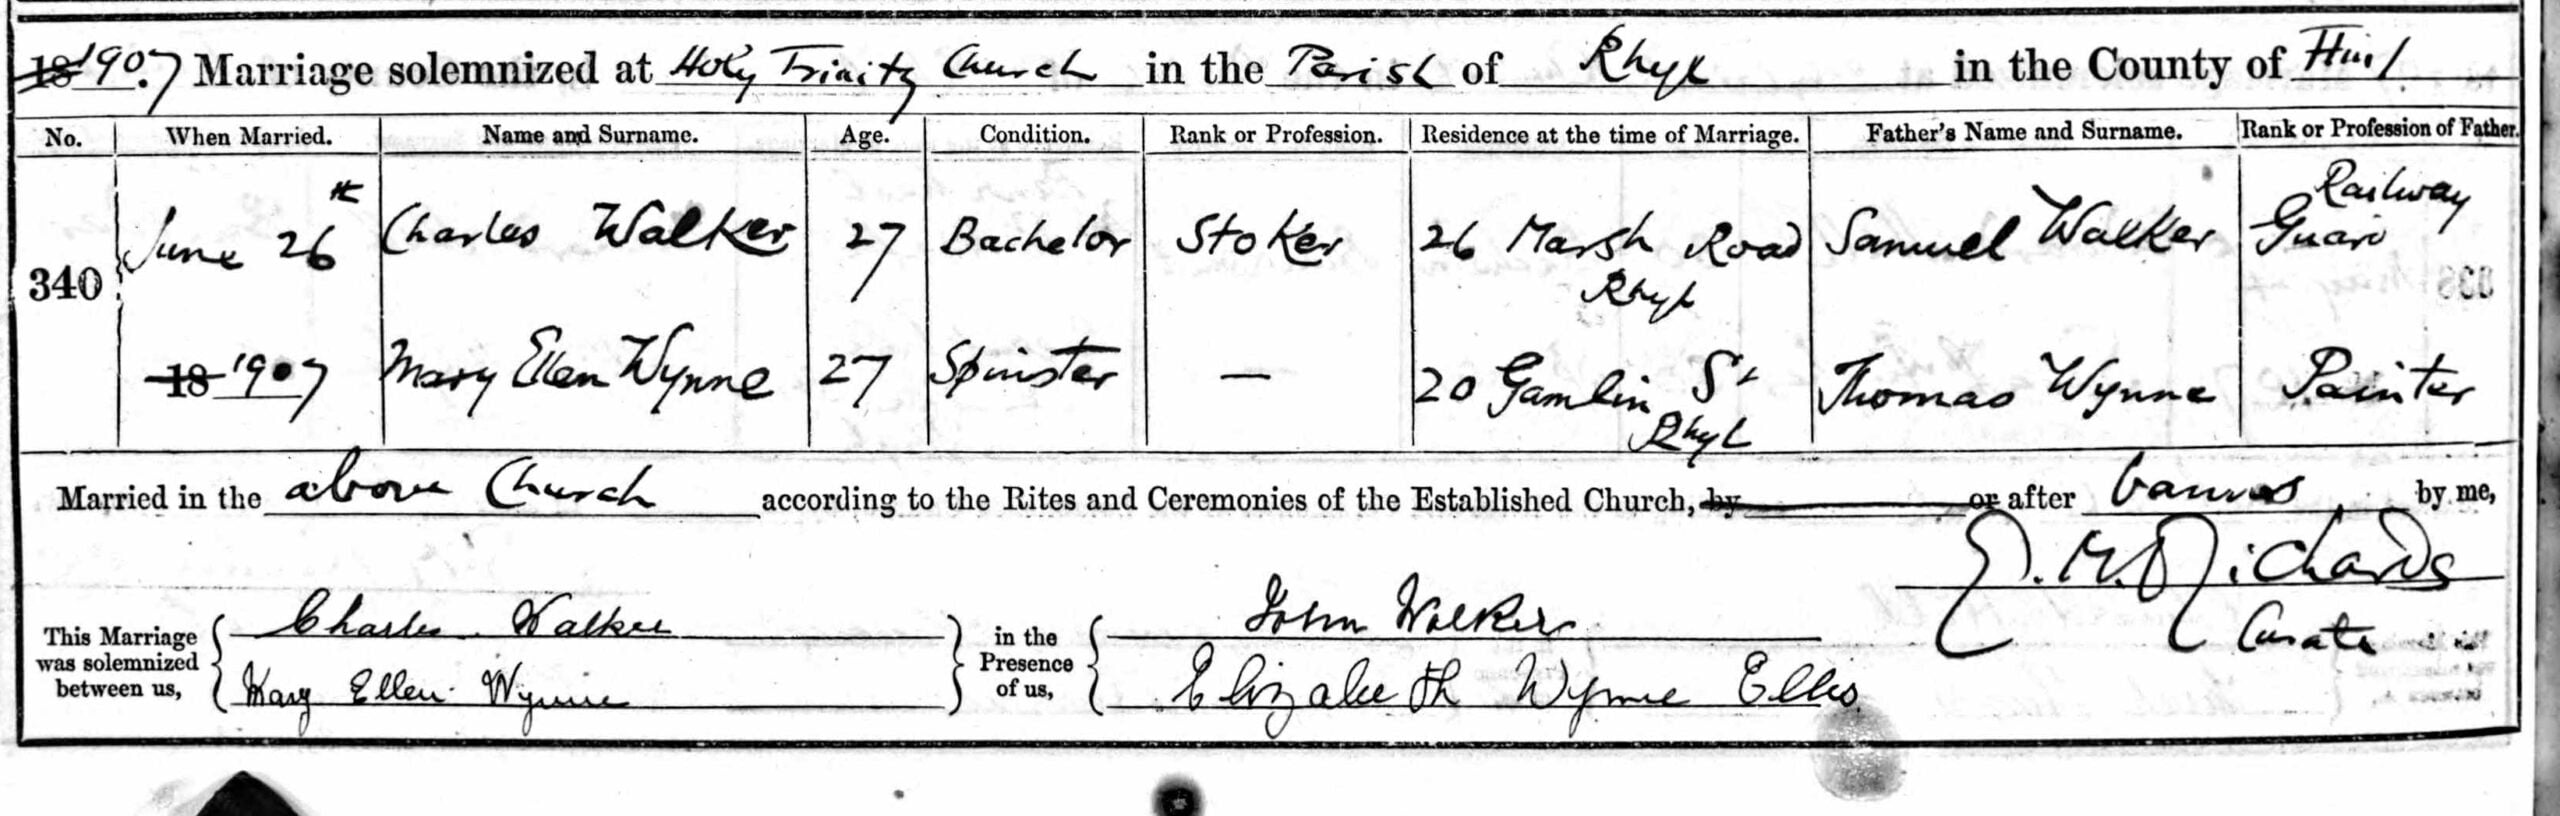 18 1907 Marriage solemnized at Holy Trinity Church in the Parish of Rhyl in the County of Flint
No. When Married. Name and Surname. Age. Condition. Rank or Profession. Residence at the time of Marriage. Father's Name and Surname. Rank or Profession of Father.
340 June 26th Charles Walker 27 Bachelor Stoker 26 Marsh Road Rhyl Samuel Walker Railway Guard
18 1907 Mary Ellen Wynne 27 Spinster — 20 Gamlin St Rhyl Thomas Wynne Painter
Married in the above Church according to the Rites and Ceremonies of the Established Church, by or after banns by me,
E. M. Richards
Curate
This Marriage was solemnized between us, Charles Walker in the Presence of us, John Walker
Mary Ellen Wynne Elizabeth Wynne Ellis